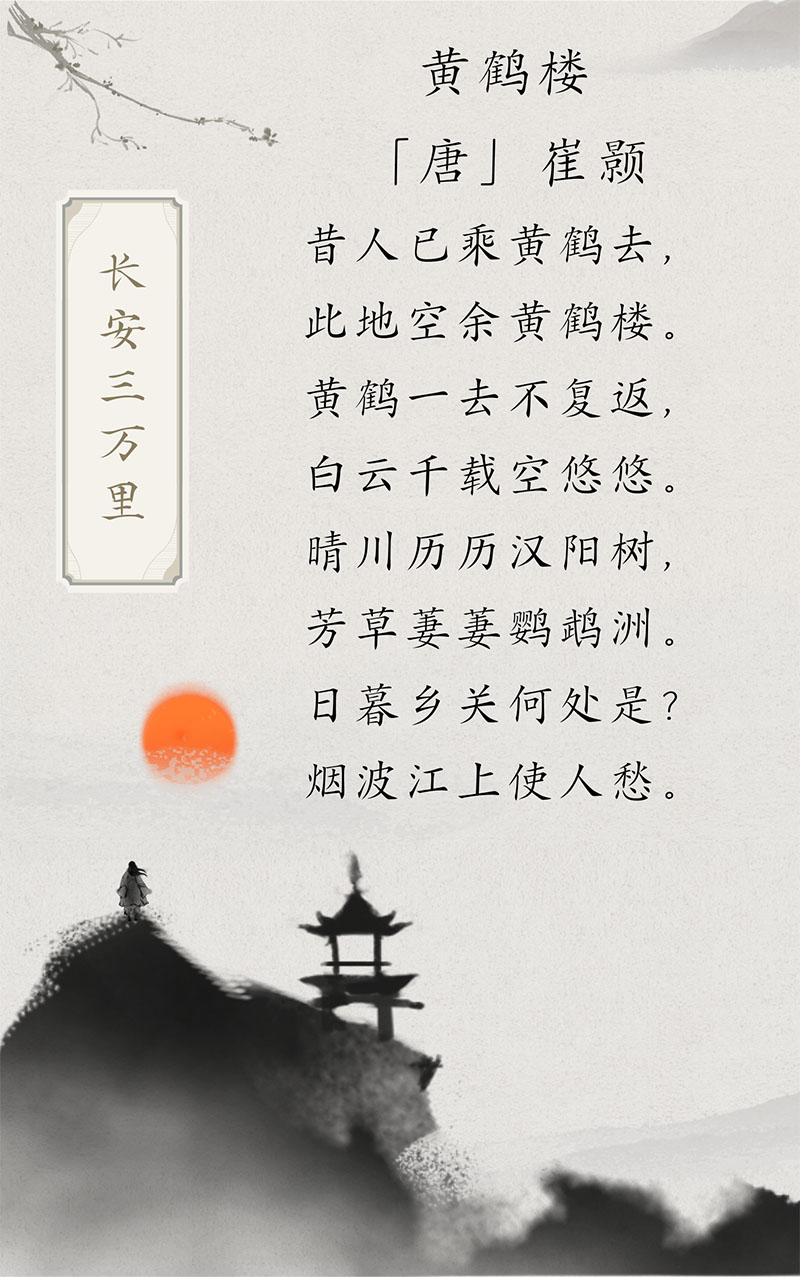 黄鹤楼
「唐」崔颢
昔人已乘黄鹤去，
此地空余黄鹤楼。
黄鹤一去不复返，
白云千载空悠悠。
晴川历历汉阳树，
芳草萋萋鹦鹉洲。
日暮乡关何处是？
烟波江上使人愁。
长安三万里